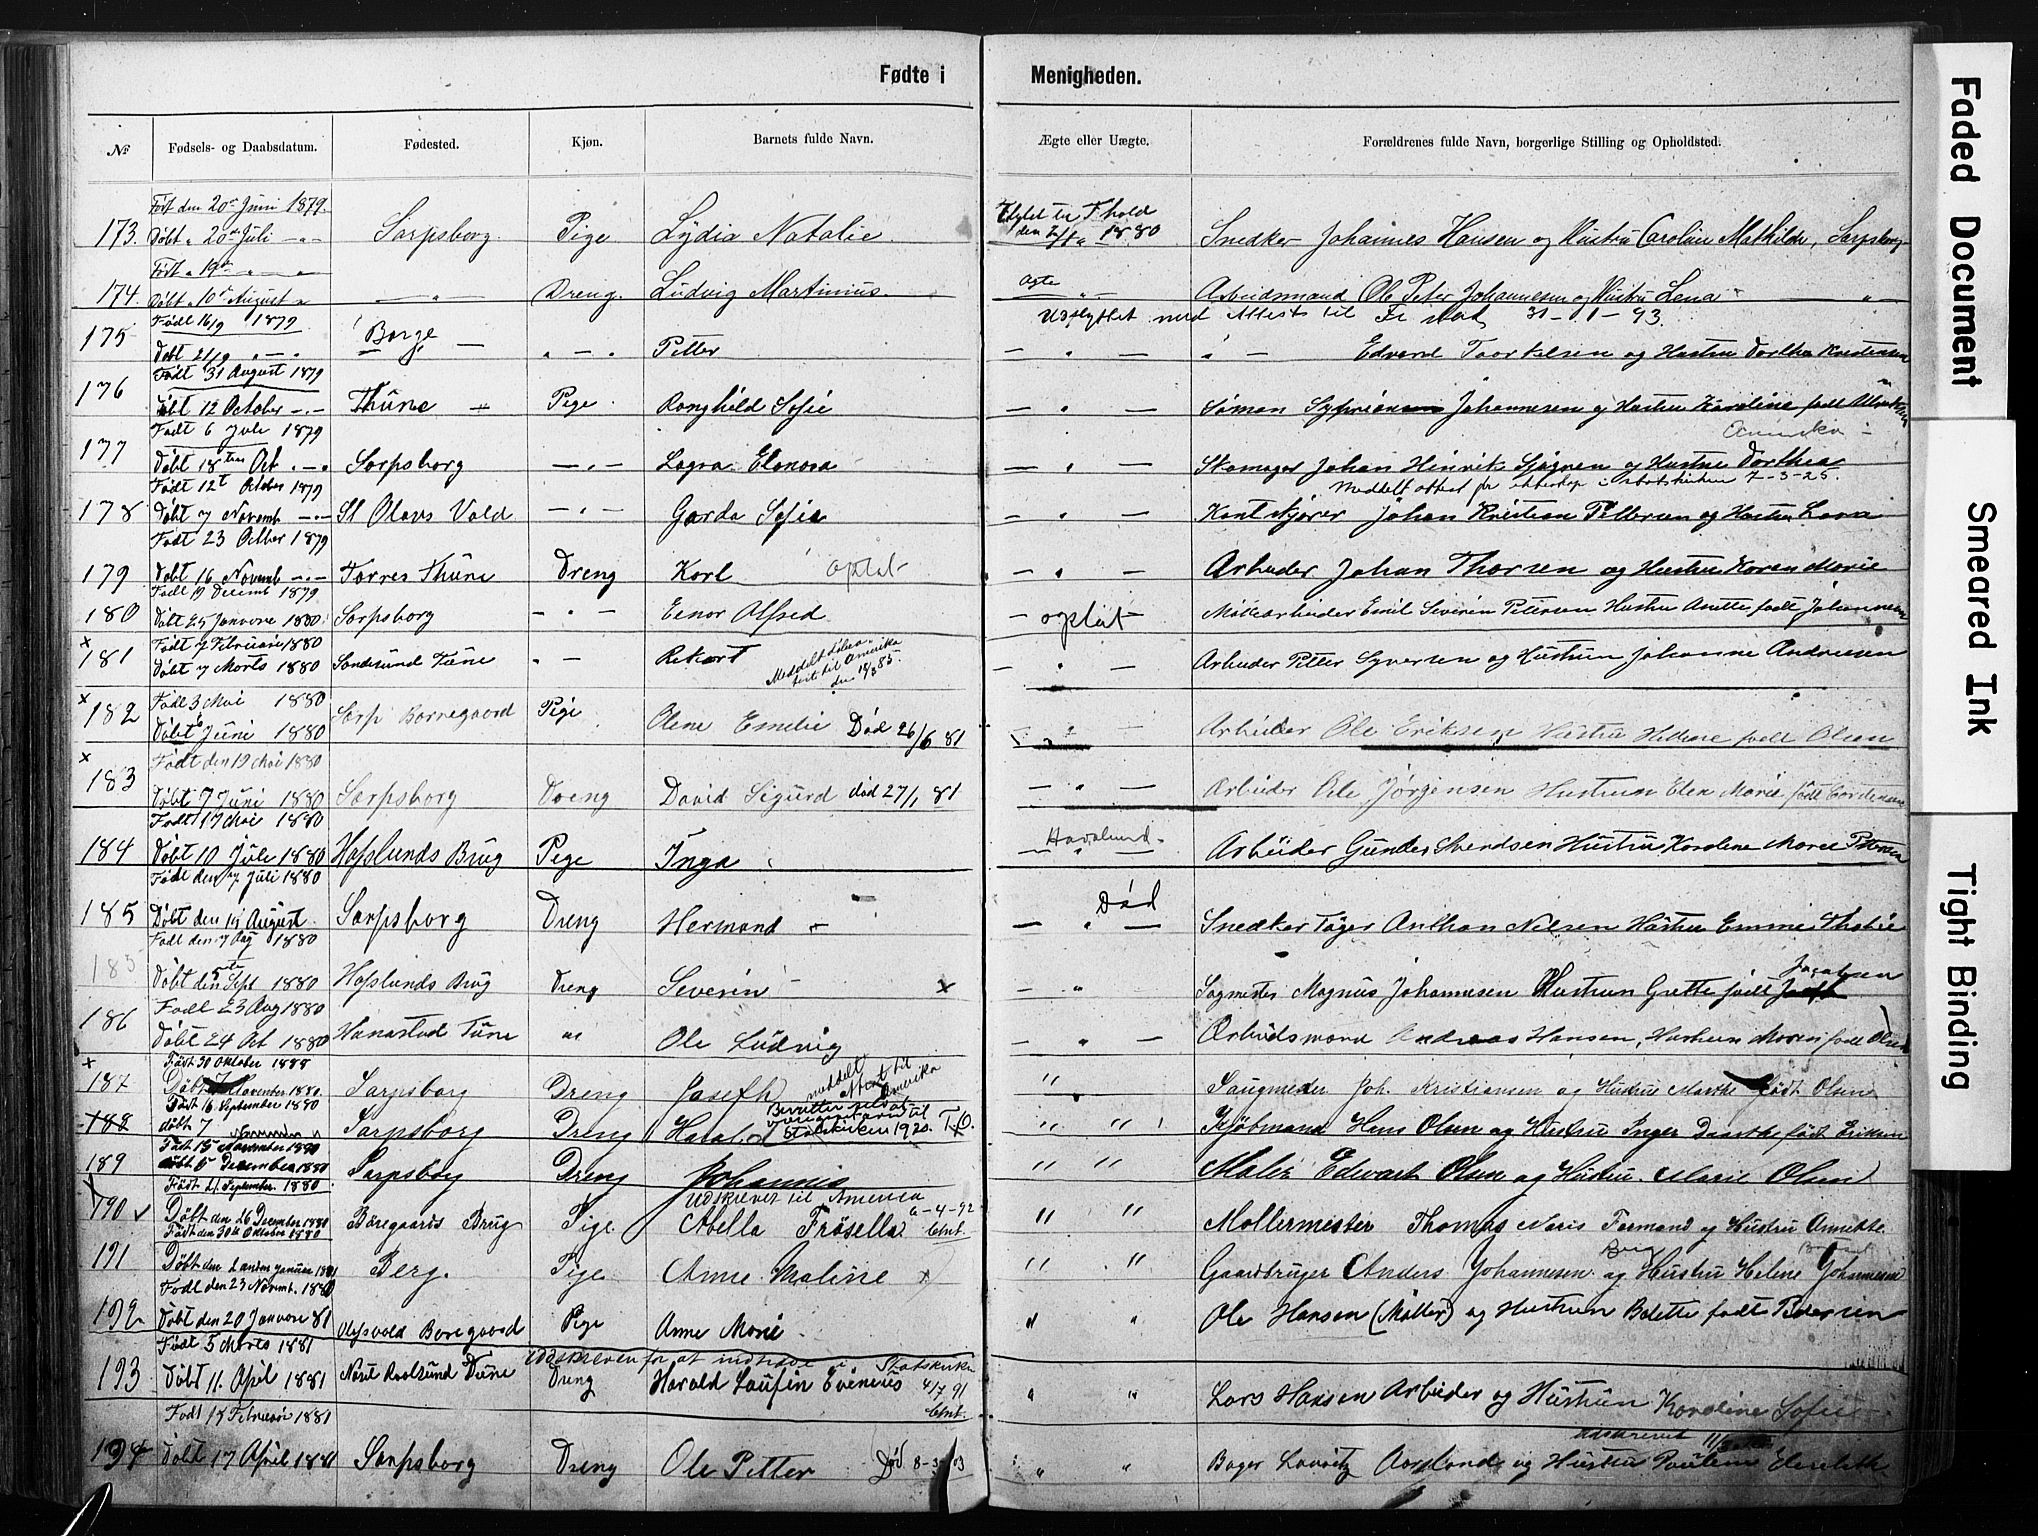 Fødte i Menigheden.
№ Fødsels- og Daabsdatum. Fødested. Kjøn. Barnets fulde Navn. Ægte eller Uægte. Forældrenes fulde Navn, borgerlige Stilling og Opholdsted.
Født den 20de Juni 1879. Flyttet til F hald
173. Døbt " 20de Juli — " — Sarpsborg. Pige Lydia Natalie. den 1880 Snedker Johannes Hansen og Hustru Caroline Mathilde, Sarpsborg
Født " 19de " — " Ægte
174. Døbt " 10de August " — " — Dreng. Ludvig Martinius. " — Arbeidsmand Ole Peter Johannesen og Hustru Lena " "
Født 16/9 1879 Udflyttet med Attest til Fr stad 31-1-93.
175 Døbt 21/9 " — " Borge — " — " Petter — " — " — Edvard Taarkelsen og Hustru Dorthea Kristensen
Født 31 August 1879
176 Døbt 12 October — " — Thune Pige Ranghild Sofie — " — Sømon Johannesen og Hustru Karoline født
Født 6 Juli 1879 Amerika
177 Døbt 18 Oct " — " Sarpsborg — " — Lagra Elonora — " — Skomager Johan Hinrik Sjøgren og Hustru Dorthea
Født 12t October 1879 Meddelt attest for i statskirken 7-3-25.
178 Døbt 7 Novemb — " — St Olavs Vold — " — Garda Sofie — " — Johan Kristian Pettersen og Hustru Lova
Født 23 Octber 1879
179 Døbt 16 Novemb — " — Torres Thune Dreng Karl optat — " — Arbeider Johan Thorsen og Hustru Karen Marie
Født 19 Decemb 1879
180 Døbt 25 Janvare 1880 Sarpsborg — " — Einar Alfred — optat — Møllearbeider Emil Severin Petersen Hustru Anette født Johannesen
x Født 7 Februari 1880 Meddelt
181 Døbt 7 Marts 1880 Sandesund Tune " — Rekart til Amerika — " — Arbeider Petter Syversen og Hustrun Johanne Andresen
den 85.
x Født 3 Mai 1880
182 Døbt 6 Juni 1880 Sarp Borregaard Pige Olene Emelie Død 26/6 81 " — Arbeider Ole Eriksen Hustru Helene født Olsen
x Født den 19 Mai 1880
183 Døbt 7 Juni 1880 Sarpsborg Dreng David Sigurd død 27/1 81 — " — Arbeider Ole Jørgensen Hustrun Elen Marie født
Født 17 Mai 1880
184 Døbt 10 Juli 1880 Hafslunds Brug Pige Inga " Arbeider Gunder Svendsen Hustru Karolene Maree Petersen
Født den 7 Juli 1880 Død
185 Døbt den 15 August Sarpsborg Dreng Hermand — " — Snedker Tøger Anthan Nilsen Hustru Emmie
Født den 7 Aug 1880
185 Døbt den 5te Sept 1880 Hafslunds Brug Dreng Severin x — " Sagmester Magnus Johannesen Hustrun Grette født Jacobsen
Født 23 Aug 1880
186 Døbt 24 Oct 1880 Hanestad Tune " Ole Ludvig — " — Arbeidsmand Andreas Hansen, Hustrun Maren født Olsen
x Født 30 Oktober 1880 meddelt Attest til Amerika
187 Døbt November 1880. Sarpsborg Dreng Josefh " Saugmester Joh. Kristiansen og Hustru Marthe født Olsen
Født 16 September 1880
188 døbt 7 November " Sarpsborg Dreng Harald Statskirken 1920. T.O. " " Kjøbmand Hans Olsen og Hustru Inger født Eriksen
Født 15 November 1880
189 døbt 5 Desember 1880 Sarpsborg Dreng Johannes " " Maler Edwart Olsen og Hustru Marie Olsen
Født 21 September 1880. Udskrevet til America 6-4-92
190 Døbt den 26 December 1880 Boregaards Brug Pige Abella Frøsella Chnt. " " Møllermester Thomas Naris Formand og Hustru Annette
Født den 30te Oktober 1880 Berg
191 Døbt den 2 anden januar 1881 Berg. Pige Anne Maline x " " Gaardbruger Anders Johannesen og Hustru Helene Johannesen
Født den 23 Novemb. 1880
192 Døbt den 20 Janvare 81 Olafsvold Boregaard Pige Anne Marie " " Ole Hansen (Møller) og Hustrun Bolette født Pedersen
Født 5 Marts 1881 Udskreven for at indtræde i Statskirken
193 Døbt 11. April 1881 Tune Dreng Harald Laufin Evenius 4/7 91 " " Lars Hansen Arbeider og Hustrun Karoline Sofie
Født 18 Februari 1881 Chnt. udskrevet
194 Døbt 17 April 1881 Sarpsborg Dreng Ole Petter Død 8-3-03 " " Bager Lavritz og Hustru Pauline
Faded Document
Smeared Ink
Tight Binding